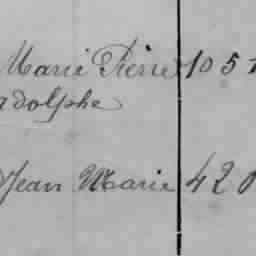 Marie Pierre 1051
Adolphe
Jean Marie 420